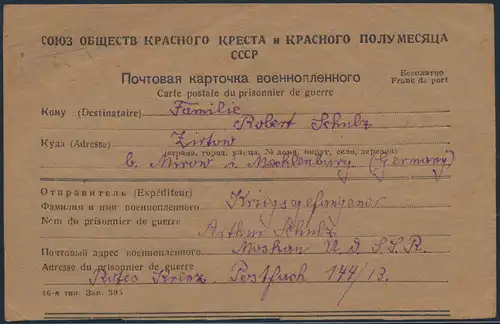 СОЮЗ ОБЩЕСТВ КРАСНОГО КРЕСТА и КРАСНОГО ПОЛУМЕСЯЦА
СССР
Почтовая карточка военнопленного
Бесплатно
Carte postale du prisonnier de guerre
Franc de port
Кому (Destinataire) Familie
Robert Schulz
Куда (Adresse) Zirtow
(страна, город, улица, № дома, округ, село, деревня)
b. Mirow i. Mecklenburg (Germany)
Отправитель (Expéditeur)
Фамилия и имя военнопленного Kriegsgefangener
Nom du prisonnier de guerre
Arthur Schulz
Почтовый адрес военнопленного Moskau U.d.S.S.R.
Adresse du prisonnier de guerre
Rotes Kreuz, Postfach 144/13.
16-я тип. Зак. 395